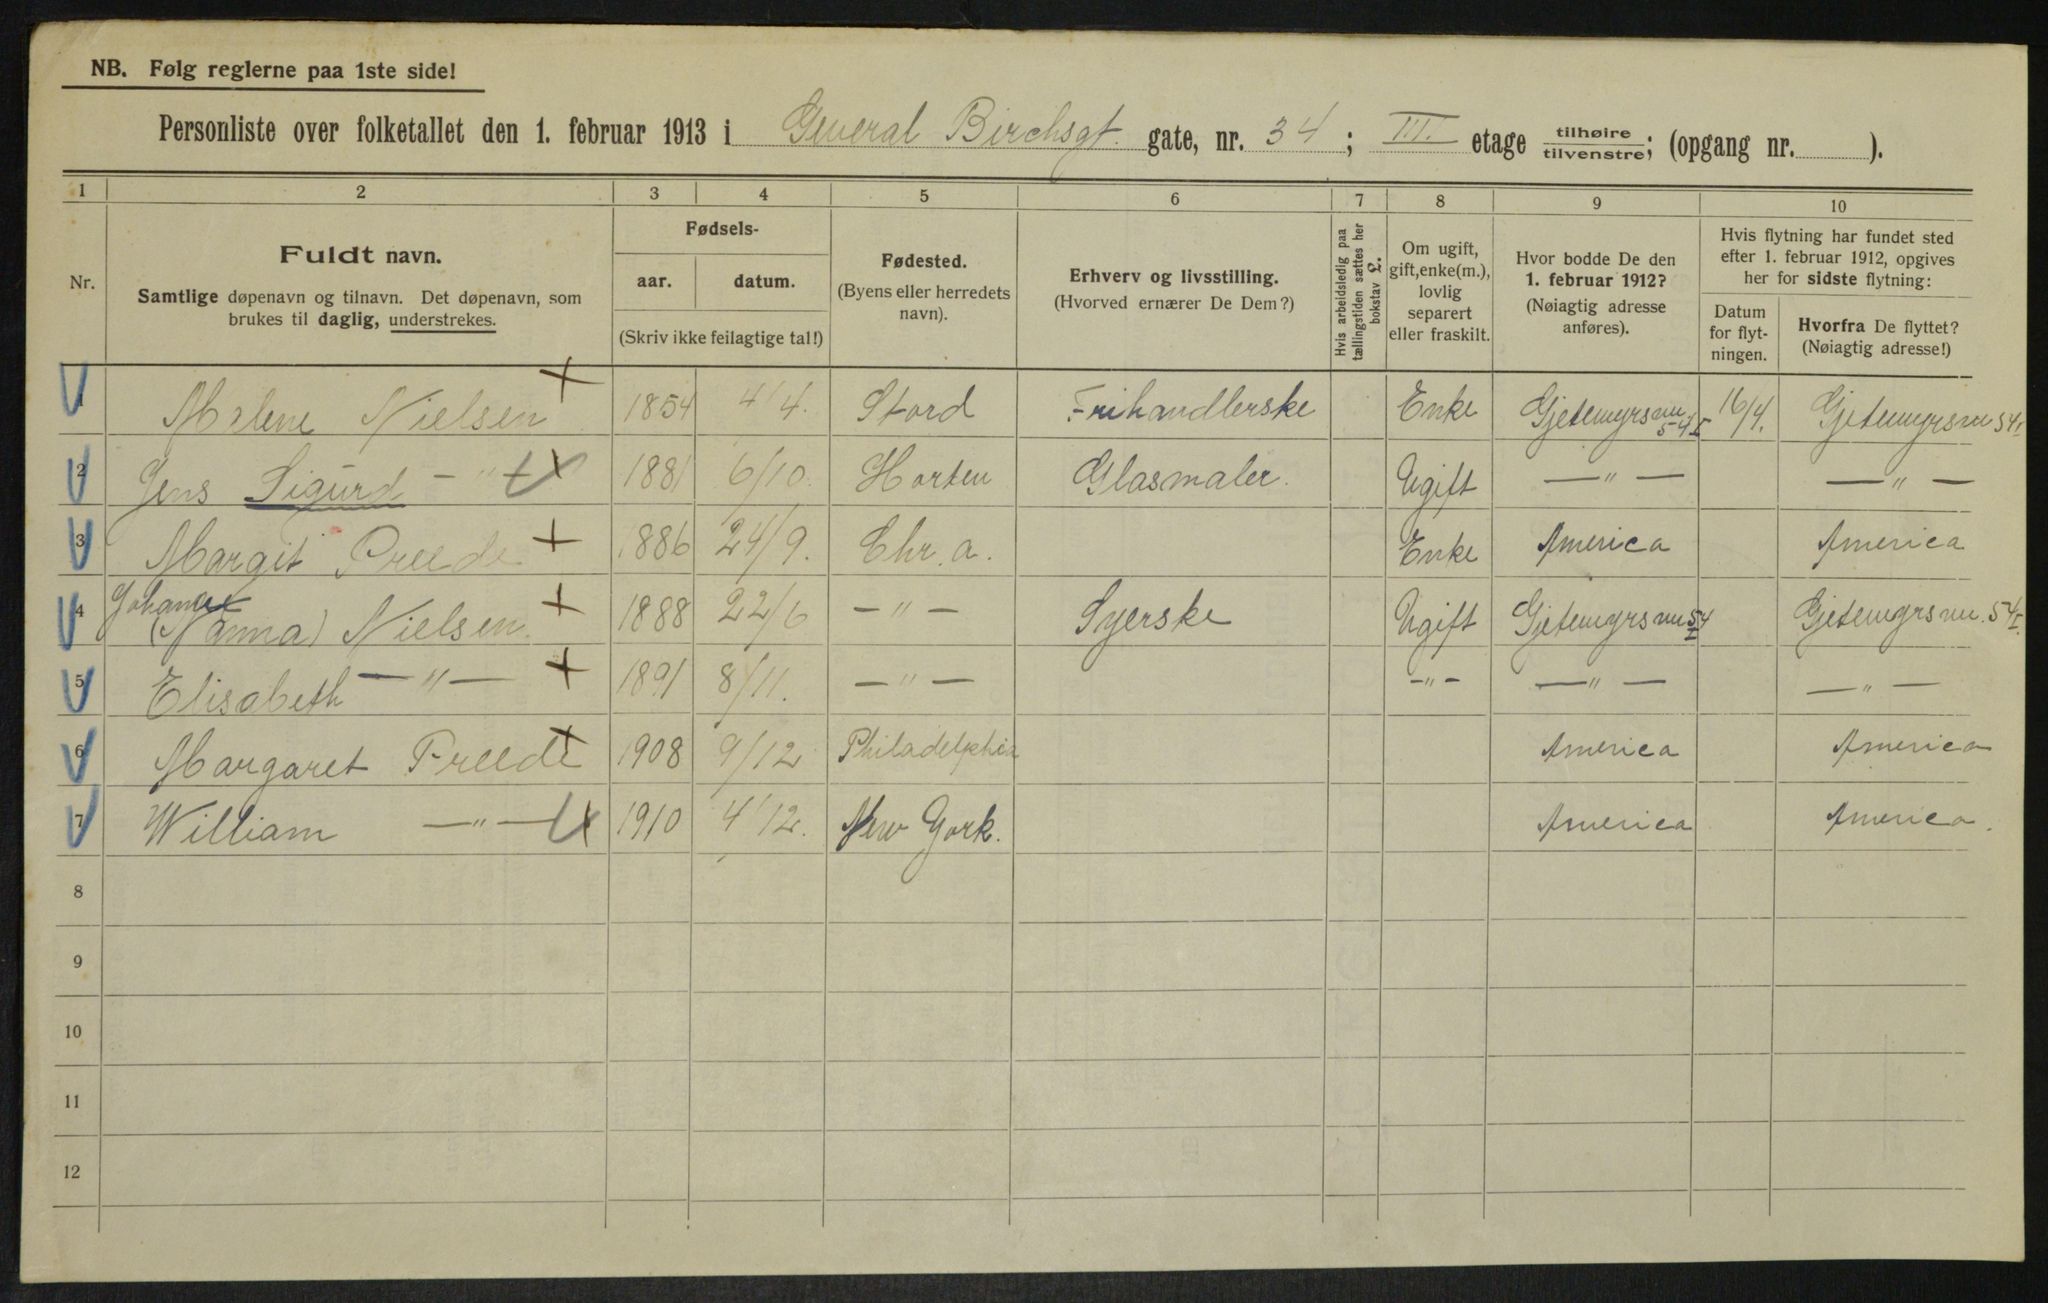 NB. Følg reglerne paa 1ste side!
Personliste over folketallet den 1. februar 1913 i General Birchsgt. gate, nr. 34; III. etage tilhøire/tilvenstre; (opgang nr. ).
1 2 3 4 5 6 7 8 9 10
Nr.
Fuldt navn.
Samtlige døpenavn og tilnavn. Det døpenavn, som
brukes til daglig, understrekes.
Fødsels-
aar. datum.
(Skriv ikke feilagtige tal!)
Fødested.
(Byens eller herredets
navn).
Erhverv og livsstilling.
(Hvorved ernærer De Dem?)
Hvis arbeidsledig paa
tællingstiden sættes her
bokstav L.
Om ugift,
gift, enke(m.),
lovlig
separert
eller fraskilt.
Hvor bodde De den
1. februar 1912?
(Nøiagtig adresse
anføres).
Hvis flytning har fundet sted
efter 1. februar 1912, opgives
her for sidste flytning:
Datum
for flyt-
ningen.
Hvorfra De flyttet?
(Nøiagtig adresse!)
1 Malene Nielsen 1854 4/4. Stord Frihandlerske Enke Gjetemyrsvn. 54 I 16/4. Gjetemyrsvn 54 I
2 Jens Sigurd —"— 1881 6/10. Horten Glasmaler. Ugift —"— —"—
3 Margit Freede 1886 24/9. Chr.a. Enke America America
4 Johanne (Nanna) Nielsen. 1888 22/6 —"— Syerske Ugift Gjetemyrsvn 54 I Gjetemyrsvn. 54 I.
5 Elisabeth —"— 1891 8/11. —"— —"— —"— —"—
6 Margaret Freede 1908 9/12 Philadelphia America America
7 William —"— 1910 4/12. New York. America America.
8
9
10
11
12